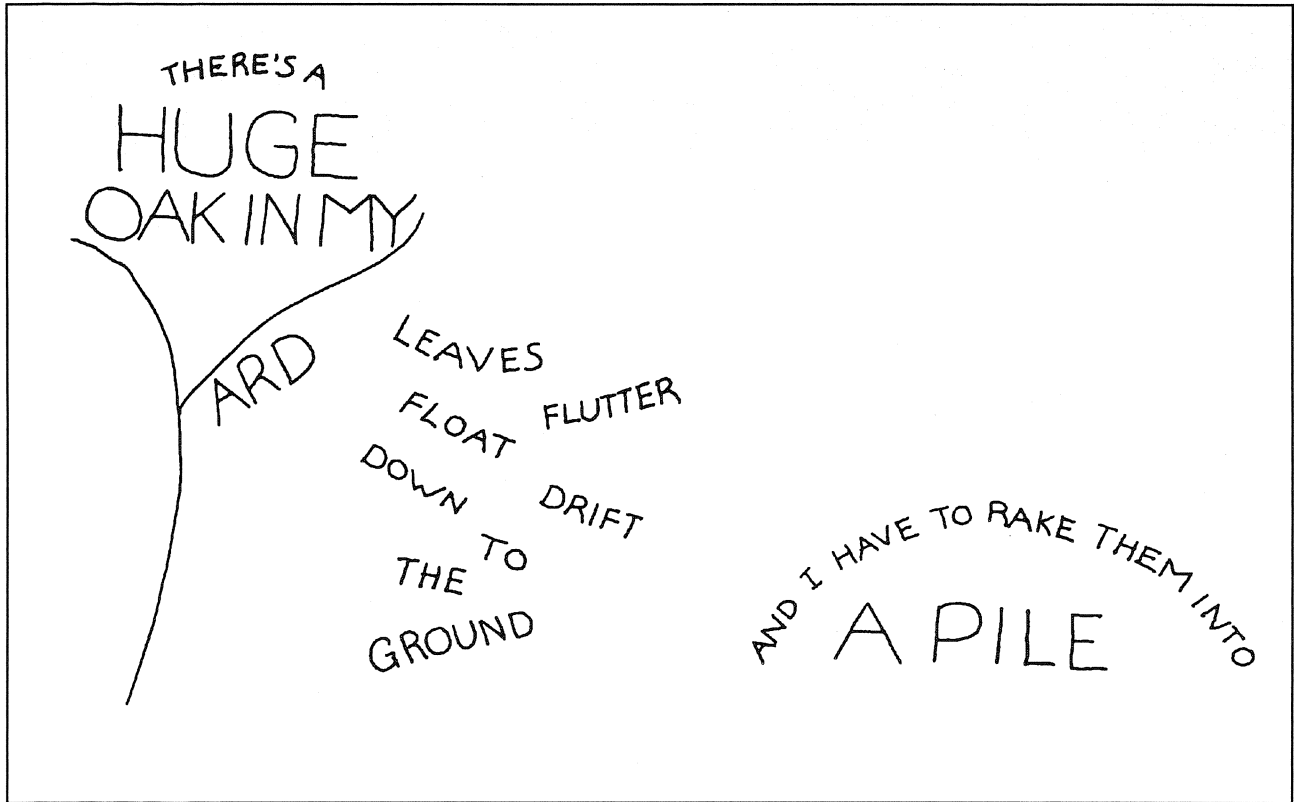 THERE'S A
HUGE
OAK IN MY
YARD
LEAVES
FLOAT
FLUTTER
DOWN
DRIFT
TO
THE
GROUND
AND I HAVE TO RAKE THEM INTO
A PILE